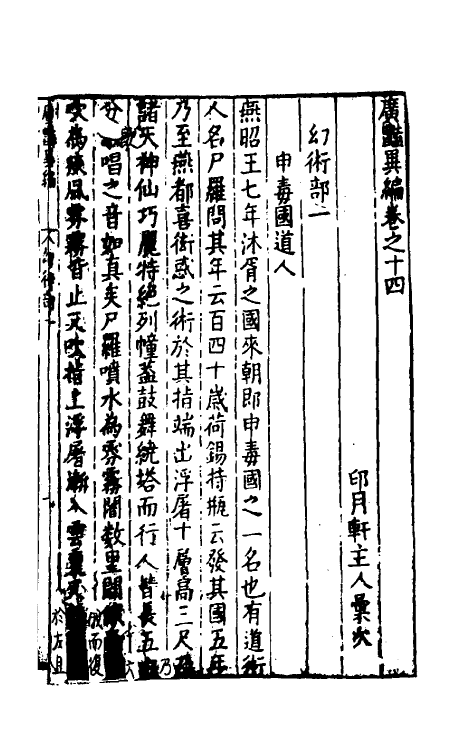 廣豔異編卷之十四
印月軒主人彙次
幻術部一
申毒國道人
燕昭王七年沐胥之國來朝即申毒國之一名也有道術
人名尸羅問其年云百四十歲荷錫持瓶云發其國五年
乃至燕都喜衒惑之術於其指端出浮屠十層高三尺
諸天神仙巧麗特絕列幢蓋鼓舞繞塔而行人皆長五
分歌唱之音如真矣尸羅噴水為雰霧闇數里間俄而復
吹為疾風雰霧皆止又吹指上浮屠漸入雲裏又於左耳